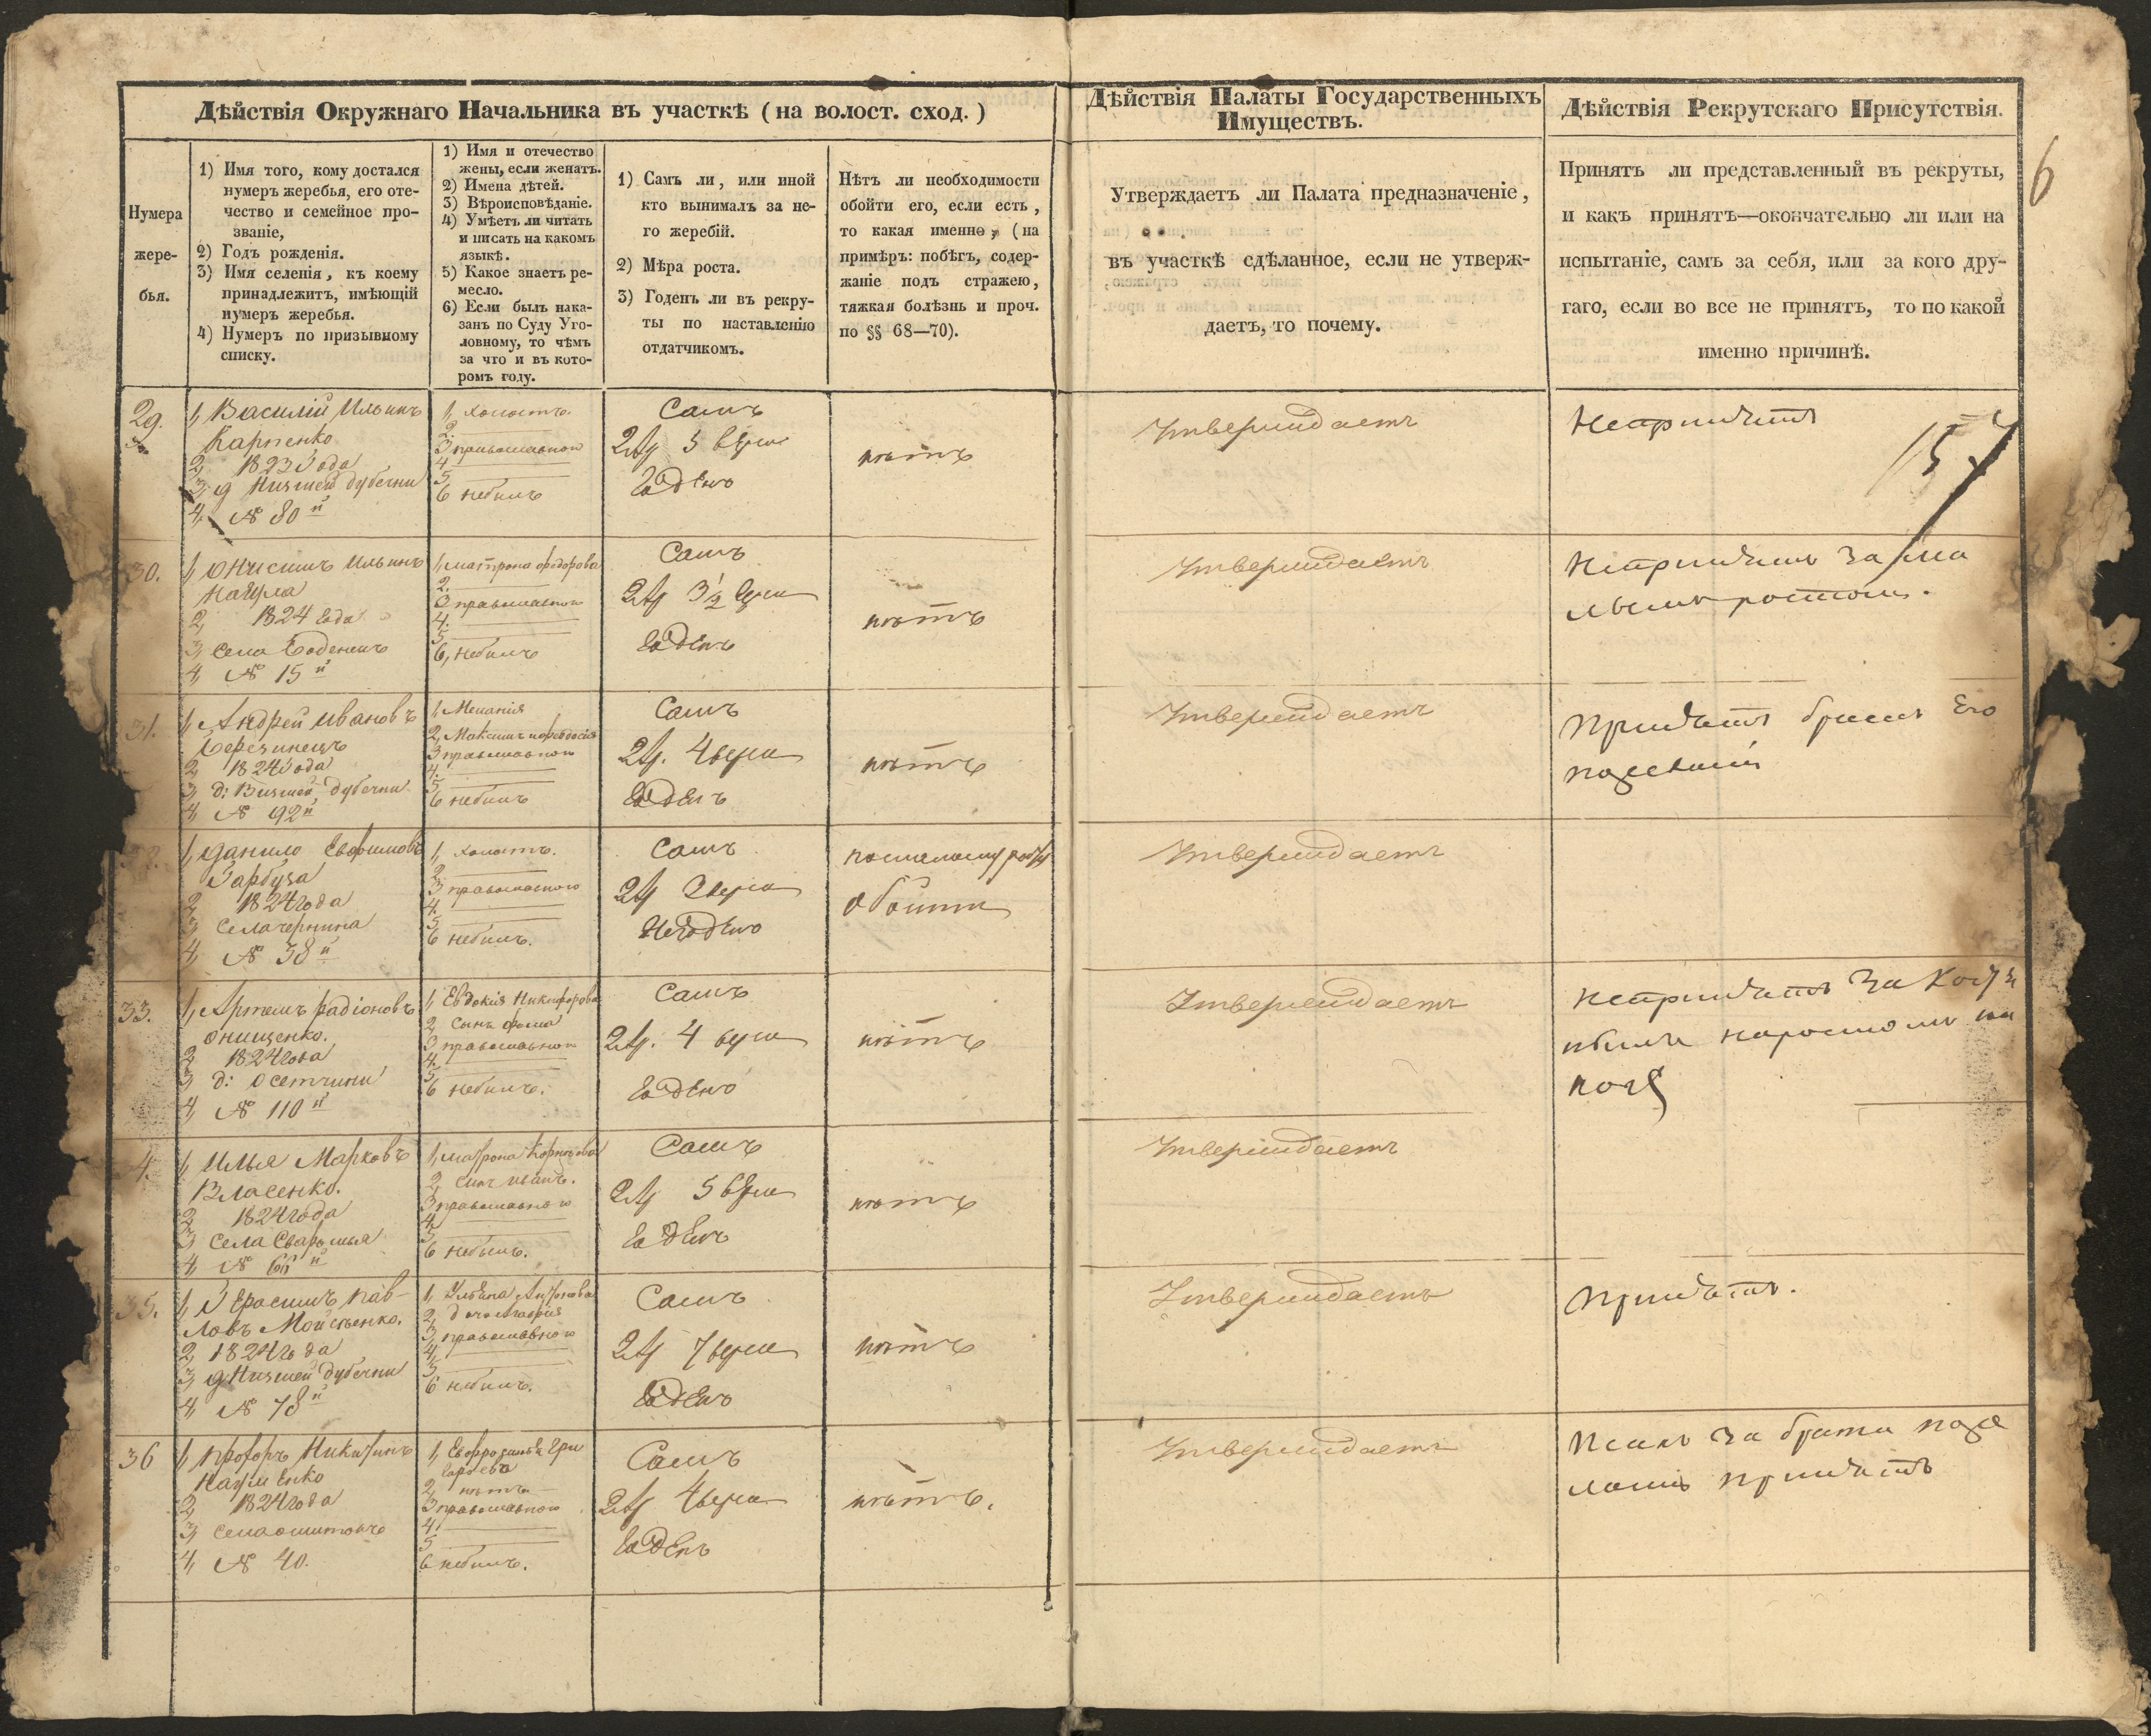 Дѣйствія Окружнаго Начальника въ участкѣ (на волост. сход.)
Нумера
жере-
бья.
1) Имя того, кому достался
нумеръ жеребья, его оте-
чество и семейное про-
званіе,
2) Годъ рожденія.
3) Имя селенія, къ коему
принадлежитъ, имѣющій
нумеръ жеребья.
4) Нумеръ по призывному
списку.
1) Имя и отечество
жены, если женатъ.
2) Имена дѣтей.
3) Вѣроисповѣданіе.
4) Умѣетъ ли читать
и писать на какомъ
языкѣ.
5) Какое знаетъ ре-
месло.
6) Если былъ нака-
занъ по Суду Уго-
ловному, то чѣмъ
за что и въ кото-
ромъ году.
1) Самъ ли, или иной
кто вынималъ за не-
го жеребій.
2) Мѣра роста.
3) Годенъ ли въ рекру-
ты по наставленію
отдатчикомъ.
Нѣтъ ли необходимости
обойти его, если есть,
то какая именно, (на
примѣръ: побѣгъ, содер-
жаніе подъ стражею,
тяжкая болѣзнь и проч.
по §§ 68—70).
Дѣйствія Палаты Государственныхъ
Имуществъ.
Утверждаетъ ли Палата предназначеніе,
въ участкѣ сдѣланное, если не утверж-
даетъ, то почему.
Дѣйствія Рекрутскаго Присутствія.
Принятъ ли представленный въ рекруты,
и какъ принятъ—окончательно ли или на
испытаніе, самъ за себя, или за кого дру-
гаго, если во все не принятъ, то по какой
именно причинѣ.
6
29.
1, Василій Ильинъ
Карпенко
2, 1823 года
3, д Низшей дубечни
4, № 80й
1, холостъ.
2.
3 православнаго
4
5
6 небылъ
Самъ
2 ар 5 верш
Годенъ
нѣтъ
Утверждаетъ
Непринятъ
15
30.
1, Онисимъ Ильинъ
2, 1824 года
3, села
4, № 15й
1, матрона федорова
2.
3 православнаго
4.
5
6, небылъ
Самъ
2 ар 3½ верш
Годенъ
нѣтъ
Утверждаетъ
Непринятъ за ма
лымъ ростомъ.
31.
1, Андрей Ивановъ
Березинецъ
2, 1824 года
3, д: Вызшей Дубечни
4, № 92й
1, Меланія
2, Максимъ и феодосія
3 православнаго
4.
5
6 небылъ
Самъ
2 ар. 4 верш
Годенъ
нѣтъ
Утверждаетъ
Принятъ братъ Его
1, Данило Евфимовъ
Гарбуза
2, 1824 года
3, села чернина
4, № 38й
1, холостъ.
2
3 православнаго
4.
5
6 небылъ.
Самъ
2 ар 2 верш
Негоденъ
помалому росту
обойти
Утверждаетъ
33.
1, Артемъ радіоновъ
Онищенко.
2, 1824 года
3, д: Осетчины
4, № 110й
1, Евдокія Никифорова
2, сынъ фома
3 православнаго
4.
5
6 небылъ.
Самъ
2 ар. 4 верш
Годенъ
нѣтъ
Утверждаетъ
Непринятъ за
наростомъ на
ногѣ
4.
1, Илья Марковъ
Власенко.
2, 1824 года
3, села Сваромья
4, №
1, матрона
2, сынъ иванъ.
3 православнаго
4
5
6 небылъ.
Самъ
2 ар 5 верш
Годенъ
нѣтъ
Утверждаетъ
35.
1, Герасимъ пав-
ловъ Мойсѣенко.
2, 1824 года
3, д Низшей Дубечни
4, № 78й
1, Ульяна Антонова
2, дочь Агафія
3, православнаго
4,
5,
6 небылъ.
Самъ
2 ар 7 верш
Годенъ
нѣтъ
Утверждаетъ
Принятъ.
36
1, Прохоръ Никитинъ
2, 1824 года
3,
4, № 40.
1, Евфросинія Гри
горьева
2, нѣтъ
3 православнаго
4
5
6 небылъ.
Самъ
2 ар 4 верш
Годенъ
нѣтъ.
Утверждаетъ
за брата
принятъ